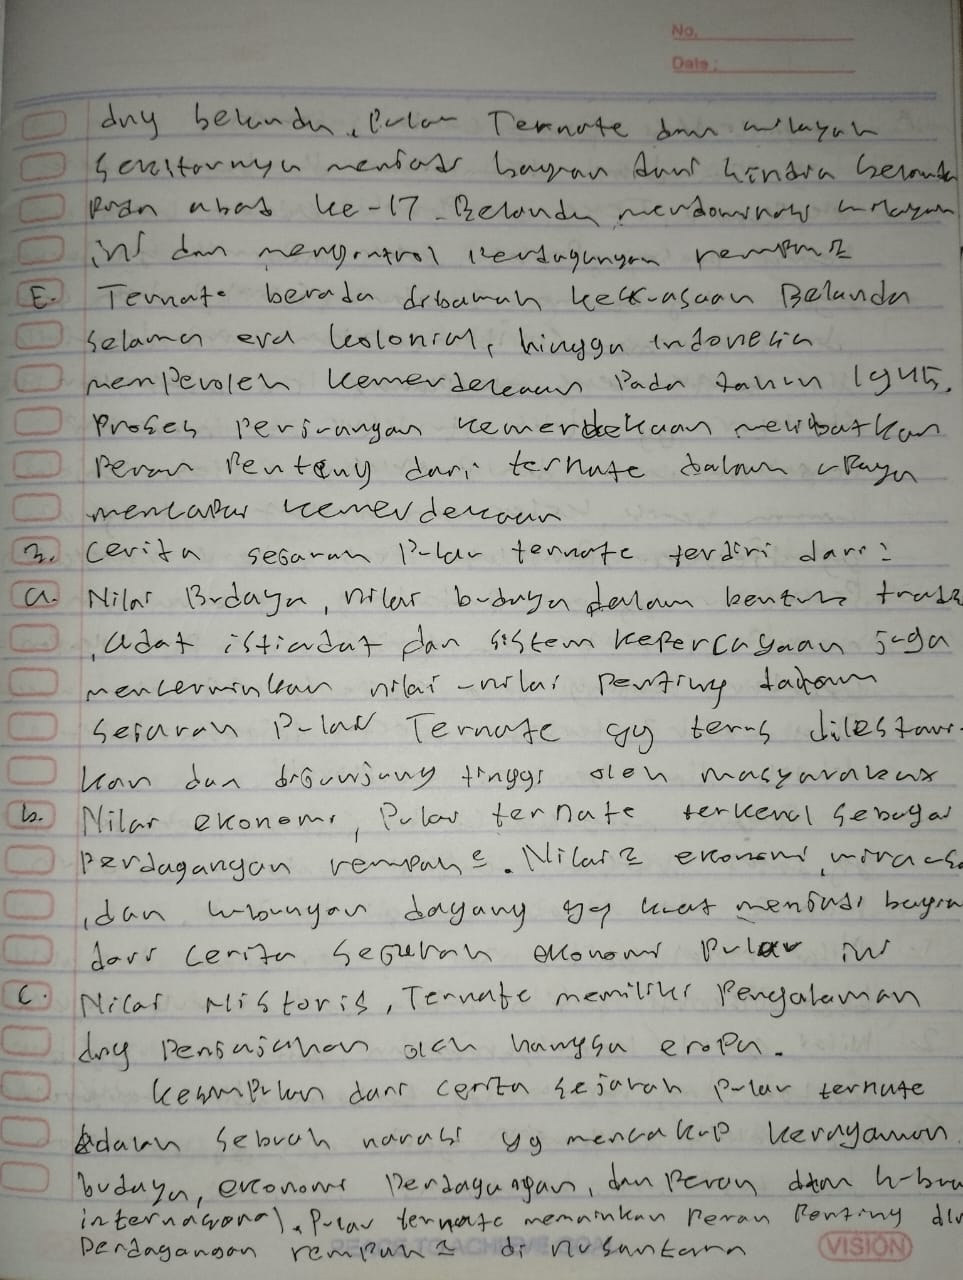 No.
Date :
dng belanda, Pulau Ternate dan wilayah
Sekitarnya menjadi bagian dari Hindia belanda
Pada abad ke-17. Belanda mendominasi wilayah
ini dan mengontrol Perdagangan rempah2
E. Ternate berada dibawah kekuasaan Belanda
Selama era kolonial, hingga Indonesia
memperoleh kemerdekaan Pada tahun 1945.
Proses perjuangan kemerdekaan melibatkan
Peran Penting dari ternate dalam upaya
mencapai kemerdekaan
3. Cerita sejarah Pulau ternate terdiri dari:
a. Nilai Budaya, nilai budaya dalam bentuk
, adat istiadat dan sistem kepercayaan juga
mencerminkan nilai-nilai Penting dalam
Sejarah Pulau Ternate yg terus dilestari-
kan dan dijunjung tinggi oleh masyarakat
b. Nilai ekonomi, Pulau ternate terkenal Sebagai
Perdagangan rempah2. Nilai2 ekonomi,
, dan hubungan dagang yg kuat menjadi
dari Cerita Sejarah ekonomi Pulau ini
C. Nilai Historis, Ternate memiliki Pengalaman
dng Penjajahan oleh bangsa eropa.
kesimpulan dari cerita sejarah Pulau ternate
adalah Sebuah narasi yg mencakup kerayaman
budaya, ekonomi Perdagangan, dan Peran dlm
internasional. Pulau ternate memainkan Peran Penting dlm
Perdagangan rempah2 di nusantara
VISION